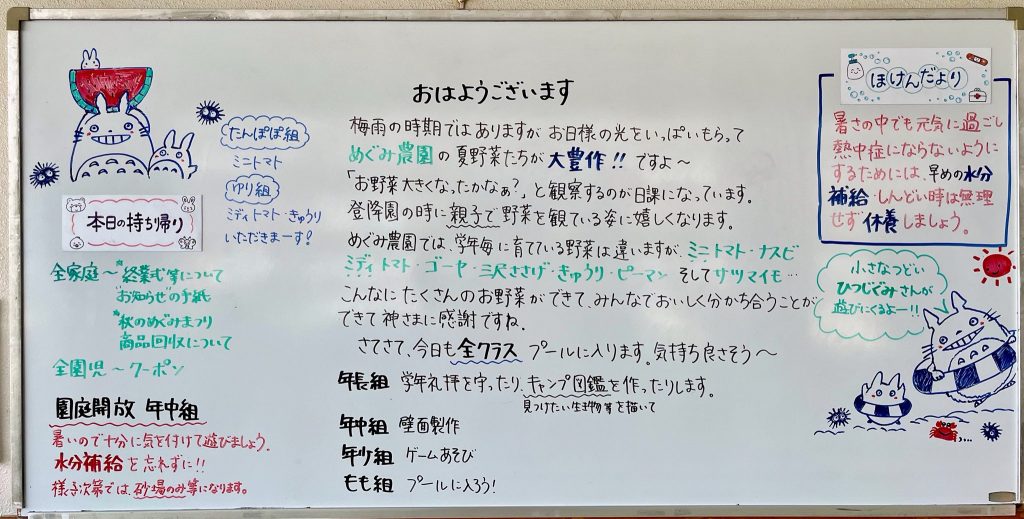 たんぽぽ組
ミニトマト
ゆり組
ミディトマト・きゅうり
いただきまーす!
本日の持ち帰り
全家庭〜*終業式等について
"お知らせ"の手紙
*秋のめぐみまつり
商品回収について
全園児〜クーポン
園庭開放 年中組
暑いので十分に気を付けて遊びましょう。
水分補給を忘れずに!!
様子次第では、砂場のみ等になります。
おはようございます
梅雨の時期ではありますが お日様の光をいっぱいもらって
めぐみ農園の夏野菜たちが大豊作!!ですよ〜
「お野菜大きくなったかなぁ?」と観察するのが日課になっています。
登降園の時に親子で野菜を観ている姿に嬉しくなります。
めぐみ農園では、学年毎に育てている野菜は違いますが、ミニトマト・ナスビ
ミディトマト・ゴーヤ・三尺ささげ・きゅうり・ピーマン そしてサツマイモ…
こんなにたくさんのお野菜ができて、みんなでおいしく分かち合うことが
できて神さまに感謝ですね。
さてさて、今日も全クラス プールに入ります。気持ち良さそう〜
年長組 学年礼拝を守ったり、キャンプ図鑑を作ったりします。
見つけたい生き物等を描いて
年中組 壁面製作
年少組 ゲームあそび
もも組 プールに入ろう!
ほけんだより
暑さの中でも元気に過ごし
熱中症にならないように
するためには、早めの水分
補給・しんどい時は無理
せず休養しましょう。
小さなつどい
ひつじぐみさんが
遊びにくるよー!!